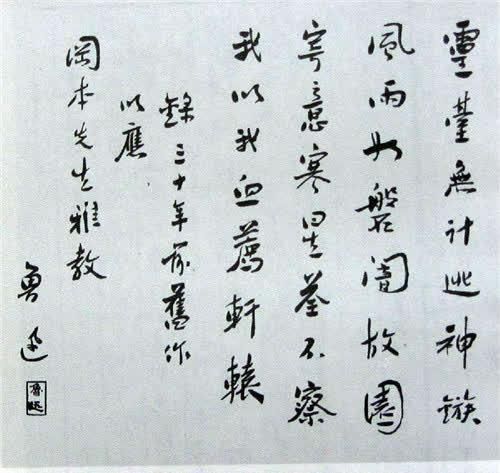 靈臺無計逃神鏃
風雨如磐闇故園
寄意寒星荃不察
我以我血薦軒轅
錄三十年前舊作
以應
岡本先生雅教
魯迅
魯迅